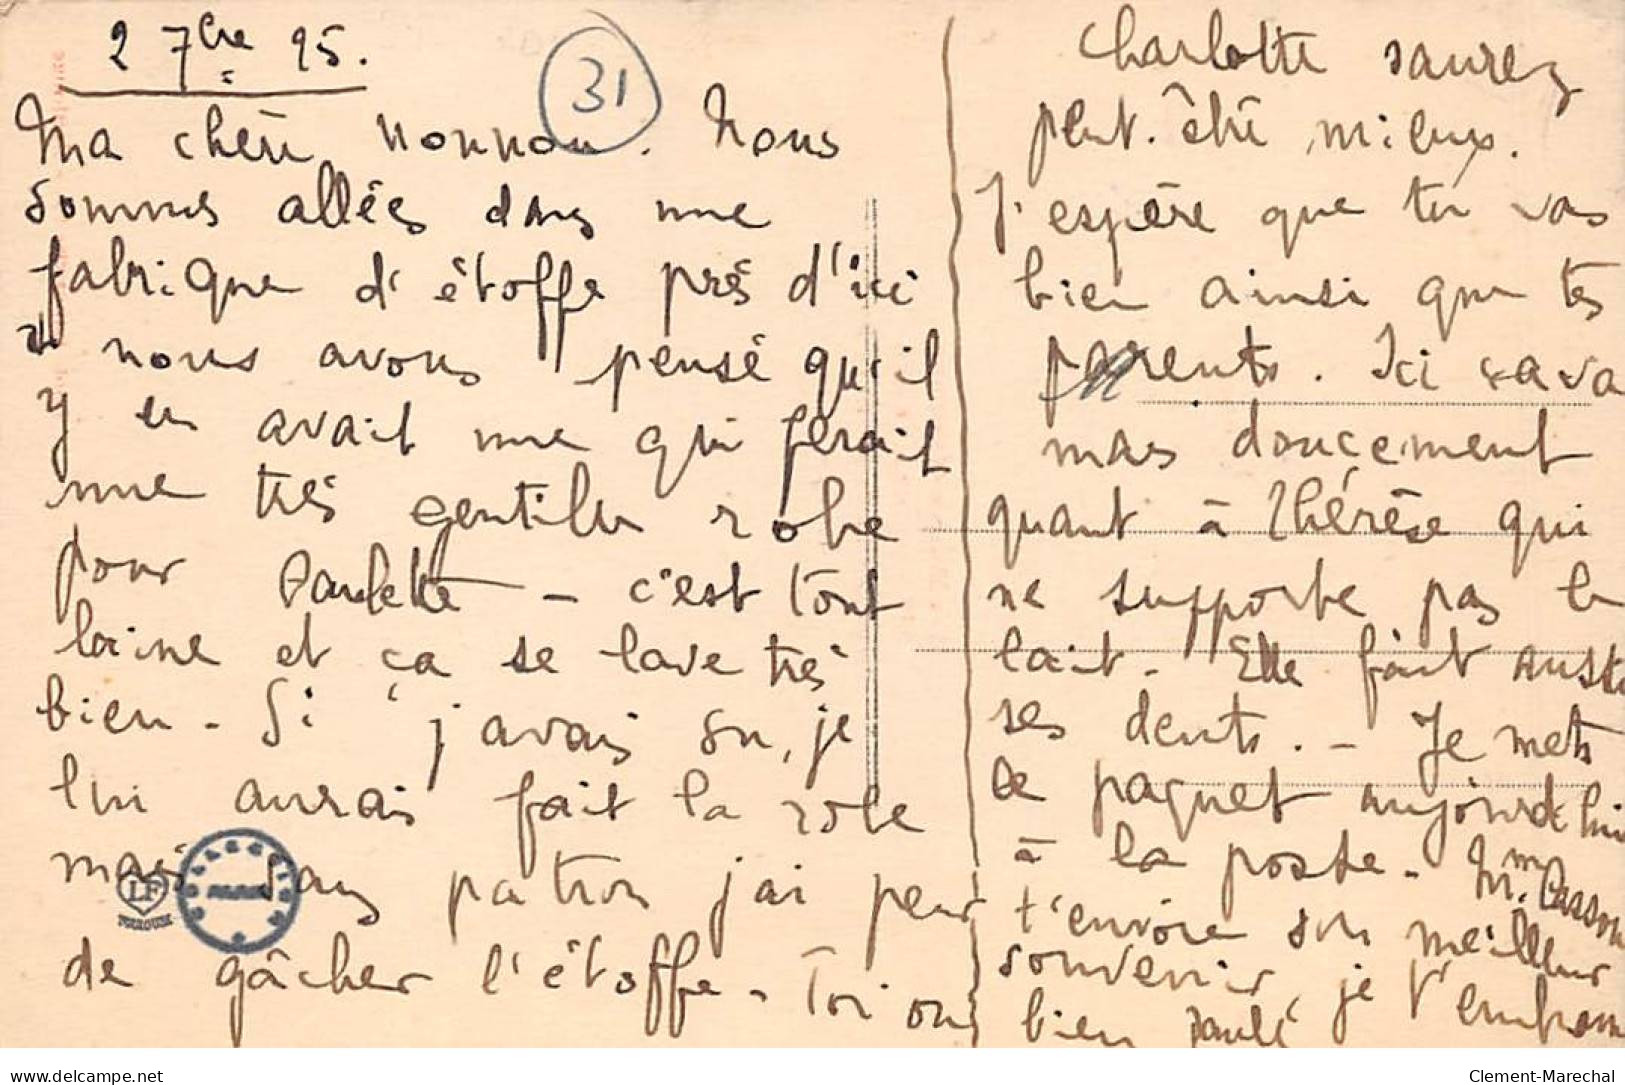 2 7bre 25.
31
Ma chère Nounou. Nous
sommes allées dans une
fabrique d'étoffe près d'ici
et nous avons pensé qu'il
y en avait une qui ferait
une très gentille robe
pour Paulette - c'est tout
laine et ça se lave très
bien - Si j'avais su, je
lui aurais fait la robe
mais sans patron j'ai peur
de gâcher l'étoffe - Toi ou
Charlotte saurez
peut-être mieux.
J'espère que tu vas
bien ainsi que tes
parents. Ici ça va
mais doucement
quant à Thérèse qui
ne supporte pas le
lait - Elle fait aussi
ses dents. - Je mets
le paquet aujourd'hui
à la poste - Mme Casson
t'envoie son meilleur
souvenir, je t'embrasse
bien
COLLECTION
LF
TOULOUSE
Clement-Marechal